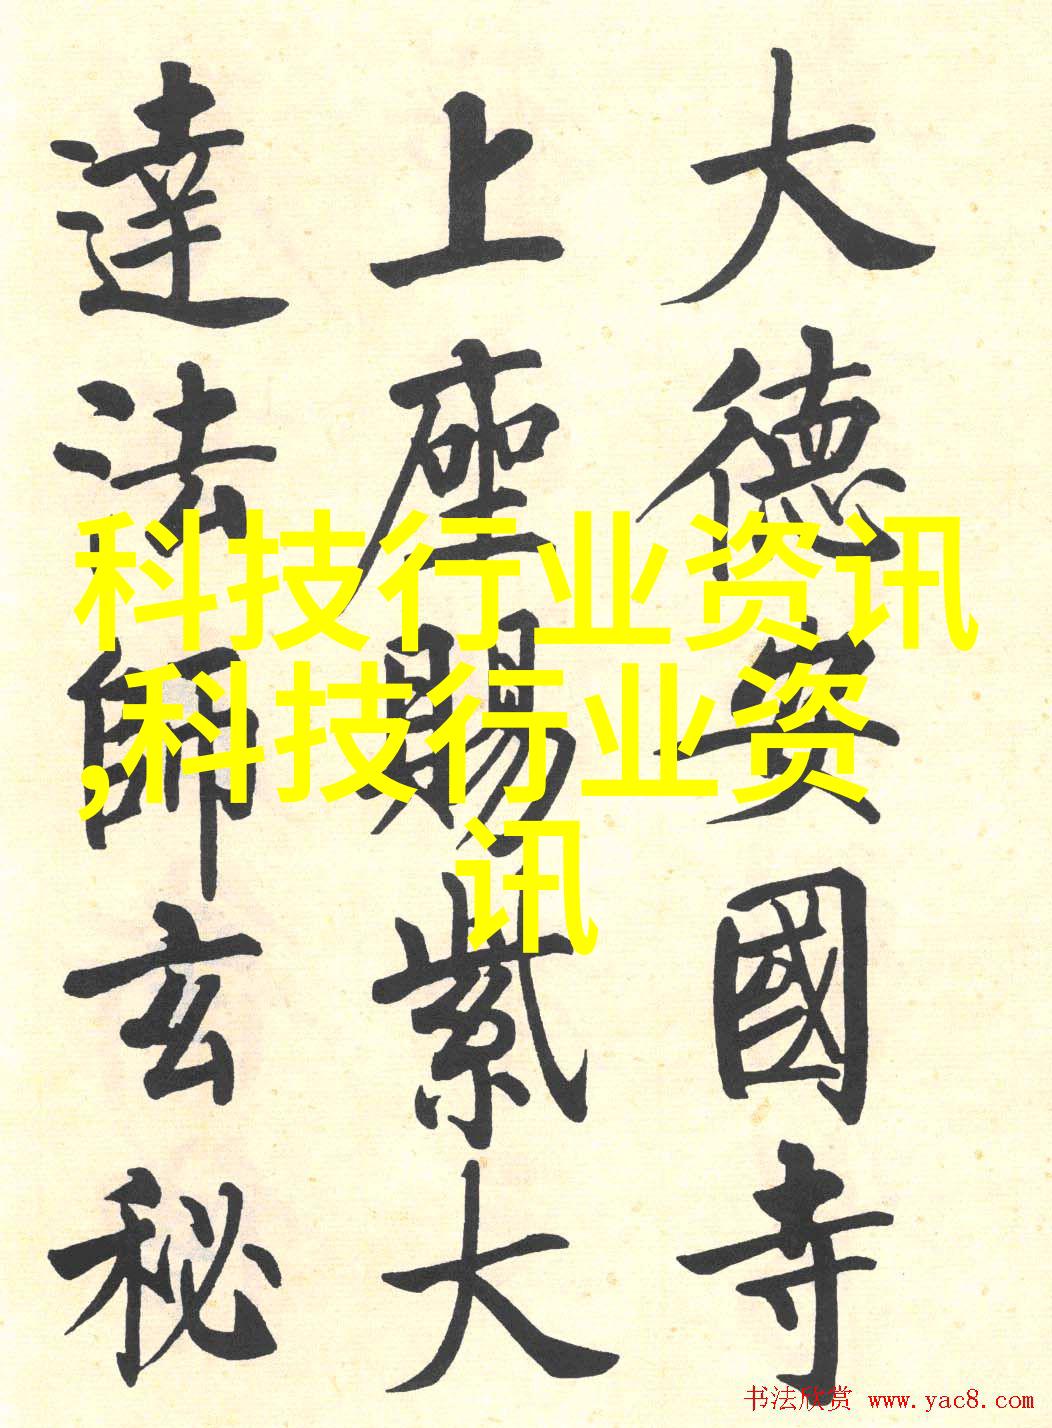 大德安國寺
上座賜紫大
達法師玄秘
科技行业资讯
,科技行业资
讯
书法欣赏 www.yac8.com